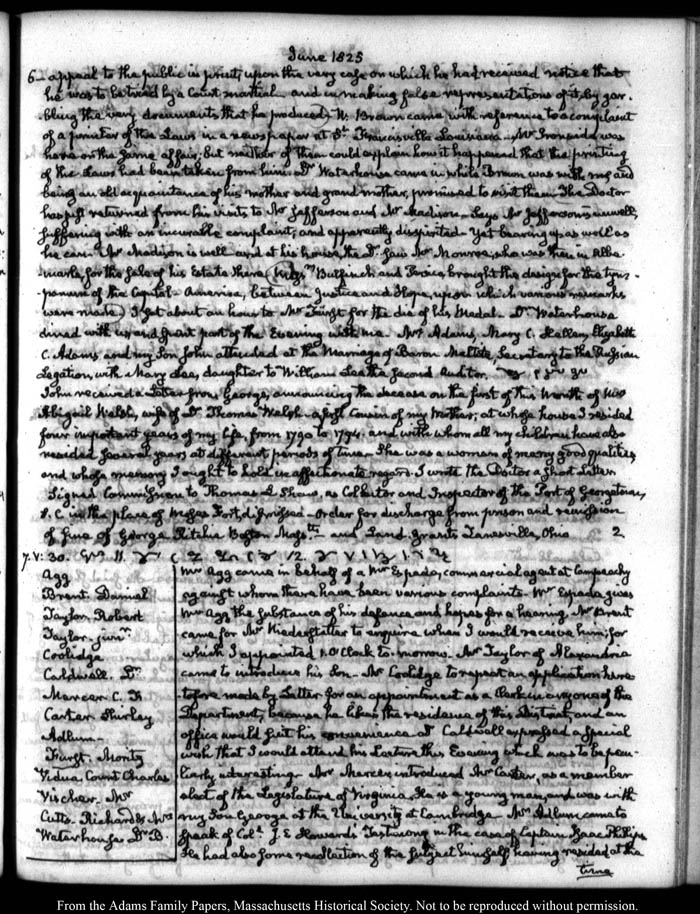 June 1825
6— appeal to the public in print, upon the very case on which he had received notice that
he was to be tried by a Court martial and in making false representations of it, by gar-
-bling the very documents that he produced, W. Brown came with reference to a complaint
of a printer of the Laws in a newspaper at St. Francisville Louisiana. Mr Ironside was
here on the same affair, but neither of them could explain how it happened that the printing
of the Laws had been taken from him. Dr Waterhouse came in while Brown was with me, and
being an old acquaintance of his mother and grand mother, promised to visit them. The Doctor
has just returned from his visits to Mr Jefferson and Mr Madison. Says Mr Jefferson is unwell,
suffering with an incurable complaint, and apparently dispirited. Yet bearing up as well as
he can. Mr Madison is well and at his house, the Dr. saw Mr Monroe, who was then in Albe-
marle, for the sale of his Estate there. Bulfinch and Persico brought the design for the tym-
-panum of the Capitol. America, between Justice and Hope, upon which various remarks
were made. I sat about an hour to Mr Fürst for the die of his Medal. Dr. Waterhouse
dined with us and spent part of the Evening with me. Mrs Adams, Mary C. Hellen, Elizabeth
C. Adams and my Son John attended at the Marriage of Baron Maltitz, Secretary to the Russian
Legation, with Mary Lee, daughter to William Lee the second Auditor.
John received a Letter from George, announcing the decease on the first of this Month of Mrs
Abigail Welsh, wife of Dr. Thomas Welsh a first Cousin of my Mother; at whose house I resided
four important years of my life, from 1790 to 1794. and with whom all my children have also
resided several years at different periods of time. She was a woman of many good qualities
and whose memory I ought to hold in affectionate regard. I wrote the Doctor a short Letter
Signed Commission to Thomas L Shaw, as Collector and Inspector of the Port of Georgetown,
S. C. in the place of Moses Fort, dismissed. Order for discharge from prison and remission
of fine of George Ritchie Boston Massts. and Land grants Zanesville, Ohio 2
7. V: 30.
Agg
Brent. Daniel
Taylor. Robert
Taylor. junr.
Coolidge
Caldwell. Dr.
Mercer C. F.
Carter Shirley
Adlum.
Fürst. Moritz
Vidua Count Charles
Vischer. Mr
Cutts. Richard & Mrs
Waterhouse Dr. B.
Mr Agg came in behalf of a Mr Espada, commercial agent at Campeachy
against whom there have been various complaints. Mr Espada gives
Mr Agg the substance of his defence and hopes for a hearing. Mr Brent
came for Mr Niederstetter to enquire when I would receive him; for
which I appointed 1. O'Clock to-morrow. Mr Taylor of Alexandria
came to introduce his Son. Mr Coolidge to repeat an application here-
tofore made by Letter for an appointment as a Clerk in any one of the
Department, because he likes the residence of this District, and an
office would suit his convenience. Dr Caldwell expressed a special
wish that I would attend his Lecture this Evening which was to be pecu-
liarly interesting. Mr Mercer introduced Mr Carter, as a member
elect of the Legislature of Virginia. He is a young man, and was with
my Son George at the University at Cambridge. Mr Adlum came to
speak of Coll. J. E Howard's Testimony in the case of Captain Isaac Phillips
He had also some recollection of the subject himself having resided at the
time
From the Adams Family Papers, Massachusetts Historical Society. Not to be reproduced without permission.